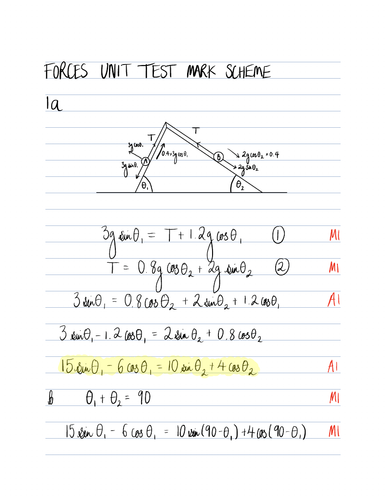 FORCES UNIT TEST MARK SCHEME
1a
T T
3gcosθ₁ 0.4×3gcosθ₁ 2gcosθ₂×0.4
3gsinθ₁ A B 2gsinθ₂
θ₁ θ₂
3g sinθ₁ = T + 1.2g cosθ₁ ① M1
T = 0.8g cosθ₂ + 2g sinθ₂ ② M1
3 sinθ₁ = 0.8cosθ₂ + 2 sinθ₂ + 1.2 cosθ₁ A1
3 sinθ₁ - 1.2 cosθ₁ = 2 sinθ₂ + 0.8 cosθ₂
15 sinθ₁ - 6 cosθ₁ = 10 sinθ₂ + 4 cosθ₂ A1
b θ₁ + θ₂ = 90 M1
15 sinθ₁ - 6 cosθ₁ = 10 sin(90-θ₁) + 4 cos(90-θ₁) M1